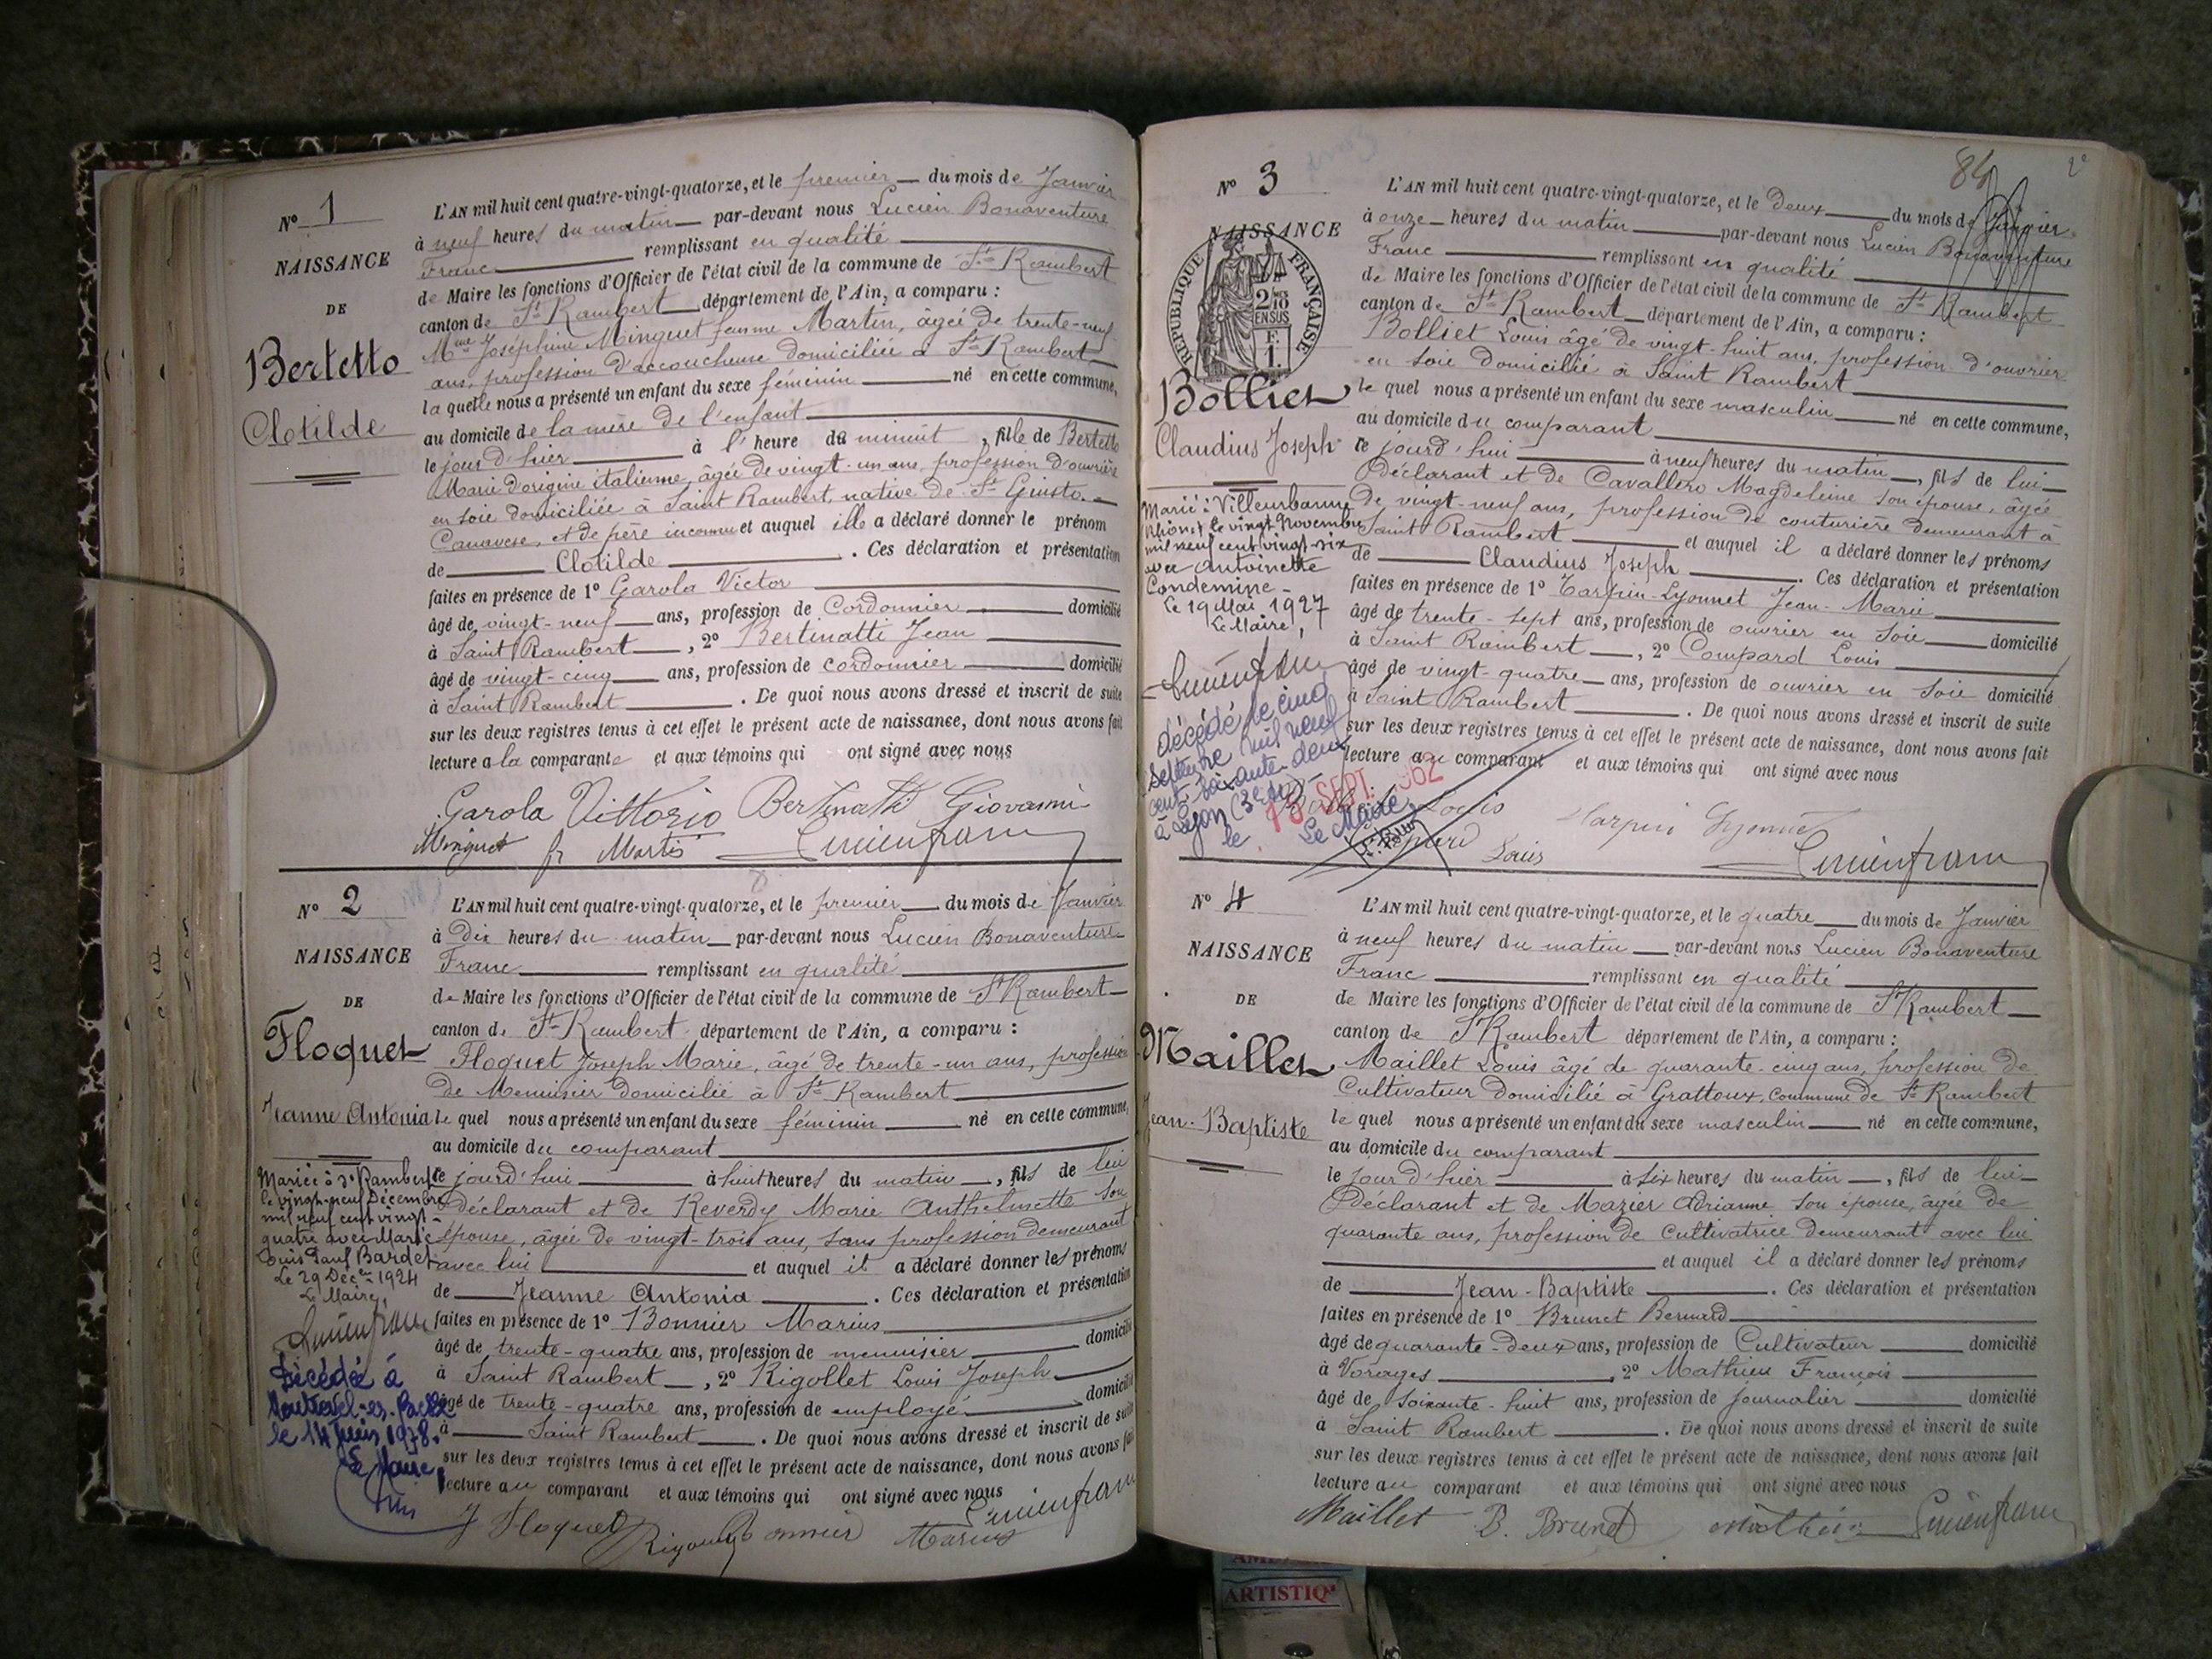 Nº 1
NAISSANCE
DE
Bertetto
Clotilde
L'AN mil huit cent quatre-vingt-quatorze, et le premier du mois de Janvier
à neuf heures du matin par-devant nous Lucien Bonaventure
Franc remplissant en qualité
de Maire les fonctions d'Officier de l'état civil de la commune de St Rambert
canton de St Rambert département de l'Ain, a comparu :
Mme Joséphine Minguet femme Martin, âgée de trente-neuf
ans, profession d'accoucheuse domiciliée à St Rambert
la quelle nous a présenté un enfant du sexe féminin né en cette commune,
au domicile de la mère de l'enfant
le jour d'hier à l'heure de minuit, fille de Bertetto
Marie d'origine italienne, âgée de vingt-un ans, profession d'ouvrière
en soie domiciliée à Saint Rambert, native de St Giusto
Canavese, et de père inconnu et auquel elle a déclaré donner le prénom
de Clotilde. Ces déclaration et présentation
faites en présence de 1º Garola Victor
âgé de vingt-neuf ans, profession de Cordonnier domicilié
à Saint Rambert, 2º Bertinatti Jean
âgé de vingt-cinq ans, profession de cordonnier domicilié
à Saint Rambert. De quoi nous avons dressé et inscrit de suite
sur les deux registres tenus à cet effet le présent acte de naissance, dont nous avons fait
lecture a la comparante et aux témoins qui ont signé avec nous
Garola Vittorio Bertinatti Giovanni
Minguet f Martin Lucienfranc
Nº 2
NAISSANCE
DE
Floquet
Jeanne Antonia
Mariée à St Rambert
le vingt-neuf Décembre
mil neuf cent vingt-
quatre avec Marie
Louis Paul Bardet
Le 29 Déc 1924
Le Maire,
Lucienfranc
Décédée à
le 14 Juin 1978.
Le Maire
L'AN mil huit cent quatre-vingt-quatorze, et le premier du mois de Janvier
à Dix heures du matin par-devant nous Lucien Bonaventure
Franc remplissant en qualité
de Maire les fonctions d'Officier de l'état civil de la commune de St Rambert
canton de St Rambert département de l'Ain, a comparu :
Floquet Joseph Marie, âgé de trente-un ans, profession
de Menuisier domicilié à St Rambert
le quel nous a présenté un enfant du sexe féminin né en cette commune,
au domicile du comparant
ce jourd'hui à huit heures du matin, fils de lui
Déclarant et de Reverdy Marie Anthelmette son
épouse, âgée de vingt-trois ans, sans profession demeurant
avec lui et auquel il a déclaré donner les prénoms
de Jeanne Antonia. Ces déclaration et présentation
faites en présence de 1º Bonnier Marius
âgé de trente-quatre ans, profession de menuisier domicilié
à Saint Rambert, 2º Rigollet Louis Joseph
âgé de trente-quatre ans, profession de employé domicilié
à Saint Rambert. De quoi nous avons dressé et inscrit de suite
sur les deux registres tenus à cet effet le présent acte de naissance, dont nous avons fait
lecture au comparant et aux témoins qui ont signé avec nous
J Floquet Bonnier Marius Lucienfranc
84
2º
Nº 3
NAISSANCE
RÉPUBLIQUE FRANÇAISE
2/10
EN SUS
F.
1
Bolliet
Claudius Joseph
Marié à Villeurbanne
Rhône, le vingt Novembre
mil neuf cent vingt-six
avec Antoinette
Condemine
Le 19 Mai 1927
Le Maire,
Lucienfranc
décédé le cinq
septembre mil neuf
cent soixante deux
à Lyon (3e)
le SEPT. 1962
Le Maire
L'AN mil huit cent quatre-vingt-quatorze, et le Deux du mois de Janvier
à onze heures du matin par-devant nous Lucien Bonaventure
Franc remplissant en qualité
de Maire les fonctions d'Officier de l'état civil de la commune de St Rambert
canton de St Rambert département de l'Ain, a comparu :
Bolliet Louis âgé de vingt-huit ans, profession d'ouvrier
en soie domicilié à Saint Rambert
le quel nous a présenté un enfant du sexe masculin né en cette commune,
au domicile du comparant
ce jourd'hui à neuf heures du matin, fils de lui
Déclarant et de Cavallero Magdeleine son épouse, âgée
de vingt-neuf ans, profession de couturière demeurant à
Saint Rambert et auquel il a déclaré donner les prénoms
de Claudius Joseph. Ces déclaration et présentation
faites en présence de 1º Tarpin-Lyonnet Jean-Marie
âgé de trente-sept ans, profession de ouvrier en soie domicilié
à Saint Rambert, 2º Compard Louis
âgé de vingt-quatre ans, profession de ouvrier en soie domicilié
à Saint Rambert. De quoi nous avons dressé et inscrit de suite
sur les deux registres tenus à cet effet le présent acte de naissance, dont nous avons fait
lecture au comparant et aux témoins qui ont signé avec nous
Louis Tarpin Lyonnet
Louis Lucienfranc
Nº 4
NAISSANCE
DE
Maillet
Jean-Baptiste
L'AN mil huit cent quatre-vingt-quatorze, et le quatre du mois de Janvier
à neuf heures du matin par-devant nous Lucien Bonaventure
Franc remplissant en qualité
de Maire les fonctions d'Officier de l'état civil de la commune de St Rambert
canton de St Rambert département de l'Ain, a comparu :
Maillet Louis âgé de quarante-cinq ans, profession de
Cultivateur domicilié à Grattoux, commune de St Rambert
le quel nous a présenté un enfant du sexe masculin né en cette commune,
au domicile du comparant
le jour d'hier à six heures du matin, fils de lui
Déclarant et de Mazier Adrianne son épouse, âgée de
quarante ans, profession de Cultivatrice demeurant avec lui
et auquel il a déclaré donner les prénoms
de Jean-Baptiste. Ces déclaration et présentation
faites en présence de 1º Brunet Bernard
âgé de quarante-deux ans, profession de Cultivateur domicilié
à Vorages, 2º Mathieu François
âgé de soixante-huit ans, profession de Journalier domicilié
à Saint Rambert. De quoi nous avons dressé et inscrit de suite
sur les deux registres tenus à cet effet le présent acte de naissance, dont nous avons fait
lecture au comparant et aux témoins qui ont signé avec nous
Maillet B. Brunet Mathieu Lucienfranc
ARTISTIQ